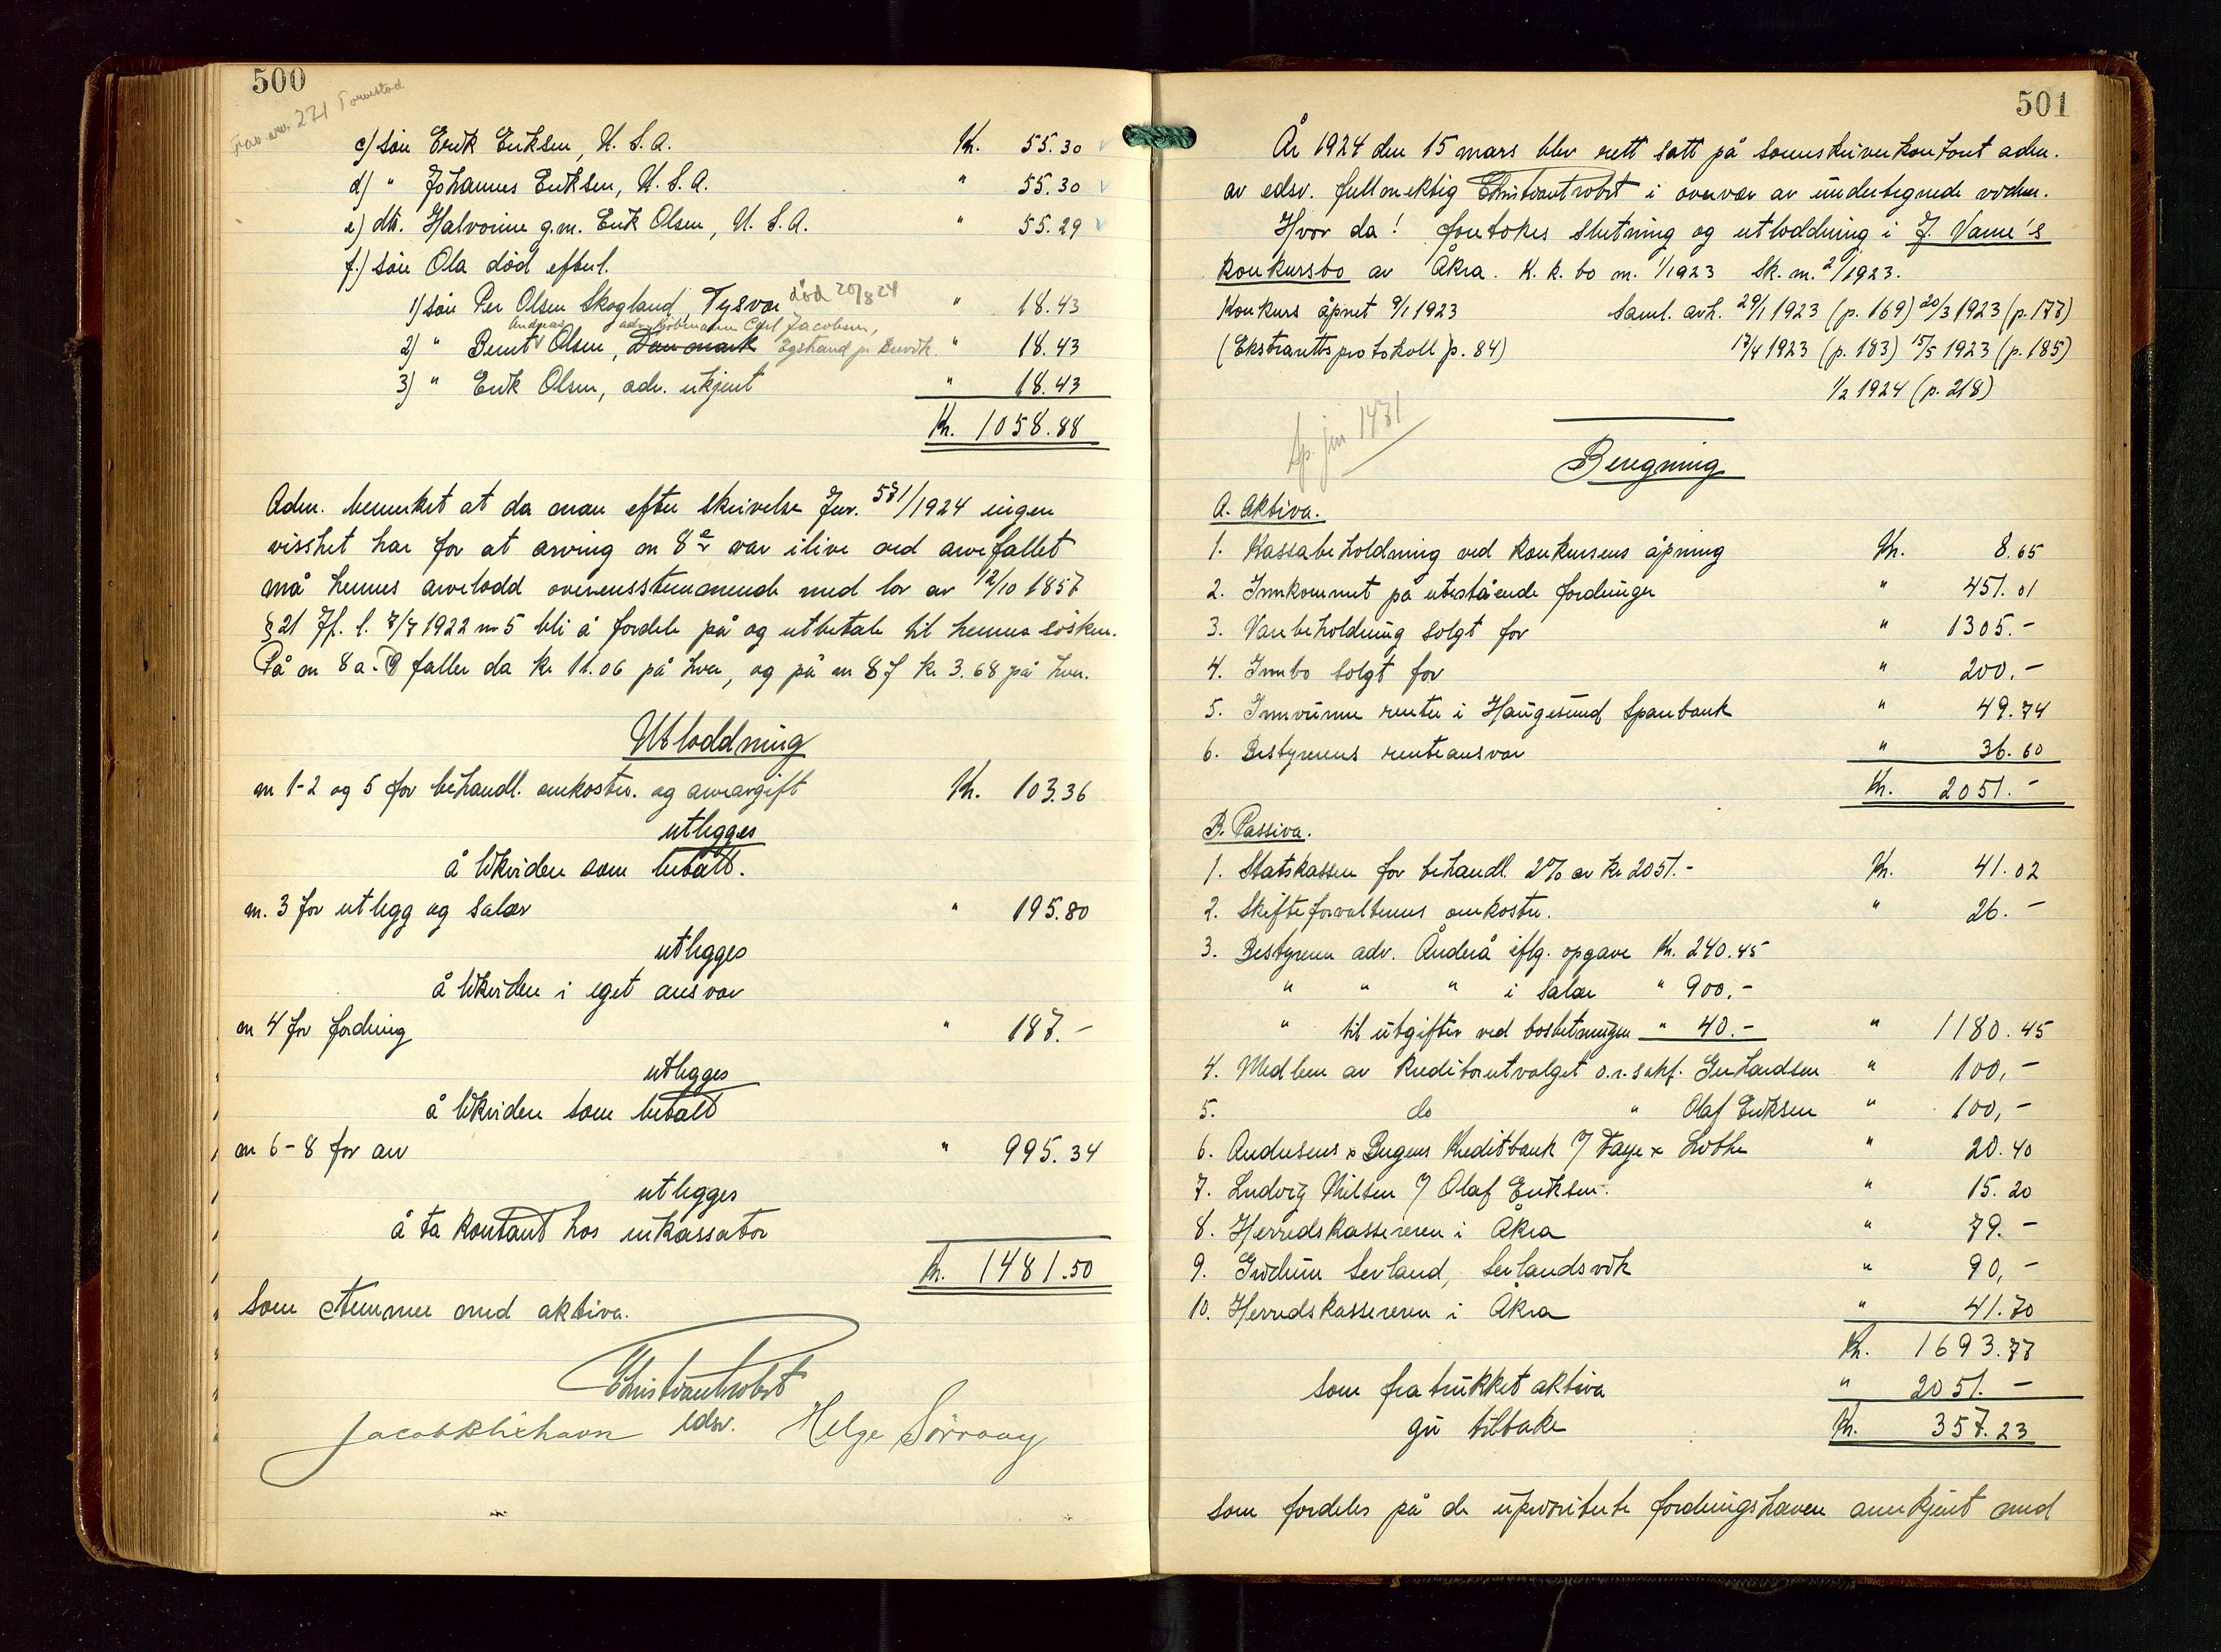 500
271 Torvestad
c) sön Erik Eriksen, U. S. A. Kr. 55.30
d) " Johannes Eriksen, U. S. A. " 55.30
e) dtr. Halvorine g.m. Erik Olsen, U. S. A. " 55.29
f.) sön Ola död efterl.
1) sön Per Olsen Skogland, Tysvær död 20/8 24 " 18.43
Andreas adr. Kjöbmann Carl Jacobsen,
2) " Bernt Olsen, Danmark Egstrand pr. Brevik " 18.43
3) " Erik Olsen, adr. ukjent " 18.43
Kr. 1058.88
Adm. bemerket at da man efter skrivelse Jnr. 571/1924 ingen
visshet har for at arving nr 8 e var ilive ved arvefallet
må hennes arvelodd overensstemmende med lov av 12/10 1857
§ 21 Jf. l. 7/7 1922 nr 5 bli å fordele på og utbetale til hennes sösken.
På nr 8 a - d faller da kr 11.06 på hver, og på nr 8 f kr 3.68 på hver.
Utloddning
nr 1-2 og 5 for behandl. omkostn. og arveavgift Kr. 103.36
utlegges
å likviden som betalt.
nr. 3 for utlegg og salær " 195.80
utlegges
å likviden i eget ansvar
nr 4 for fordring " 187.-
utlegges
å likviden som betalt
nr 6-8 for arv " 995.34
utlegges
å ta kontant hos inkassator
Kr. 1481.50
Som stemmer med aktiva.
Christian Probst
edsv.
Helge Sörvaag
501
År 1924 den 15 mars blev rett satt på sorenskriverkontoret adm.
av edsv. fullmektig Christian Probst i overvær av undertegnede vidner.
Hvor da! foretokes slutning og utloddning i J. Varne's
konkursbo av Åkra. K. k. bo nr. 1/1923 Sk. nr. 2/1923.
Konkurs åpnet 9/1 1923 Saml. avh. 29/1 1923 (p. 169) 20/3 1923 (p. 177)
(Ekstrarettsprotokoll p. 84) 17/4 1923 (p. 183) 15/5 1923 (p. 185)
1/2 1924 (p. 218)
Beregning
A. Aktiva.
1. Kassabeholdning ved konkursens åpning Kr. 8.65
2. Innkommet på utestående fordringer " 451.01
3. Varebeholdning solgt for " 1305.-
4. Innbo solgt for " 200.-
5. Innvunne renter i Haugesund Sparebank " 49.74
6. Bestyrerens renteansvar " 36.60
Kr. 2051.-
B. Passiva.
1. Statskassen for behandl. 2% av kr 2051.- Kr. 41.02
2. Skifteforvalterens omkostn. " 26.-
3. Bestyreren adv. Änderå iflg. opgave Kr. 240.45
" " " i salær " 900.-
" til utgifter ved boslutningen " 40.- " 1180.45
4. Medlem av kreditorutvalget o.r. sakf. Gerhardsen " 100,-
5. do " Olaf Eriksen " 100,-
6. Andresens & Bergens Kreditbank v/ Faye & Lothe " 20.40
7. Ludvig Nilsen v/ Olaf Eriksen. " 15.20
8. Herredskassereren i Åkra " 79.-
9. Gudrun Sevland, Sevlandsvik " 90,-
10. Herredskassereren i Åkra " 41.70
Kr. 1693.77
som fratrukket aktiva " 2051.-
gir tilbake Kr. 357.23
som fordeles på de uprioriterte fordringshavere anerkjent med